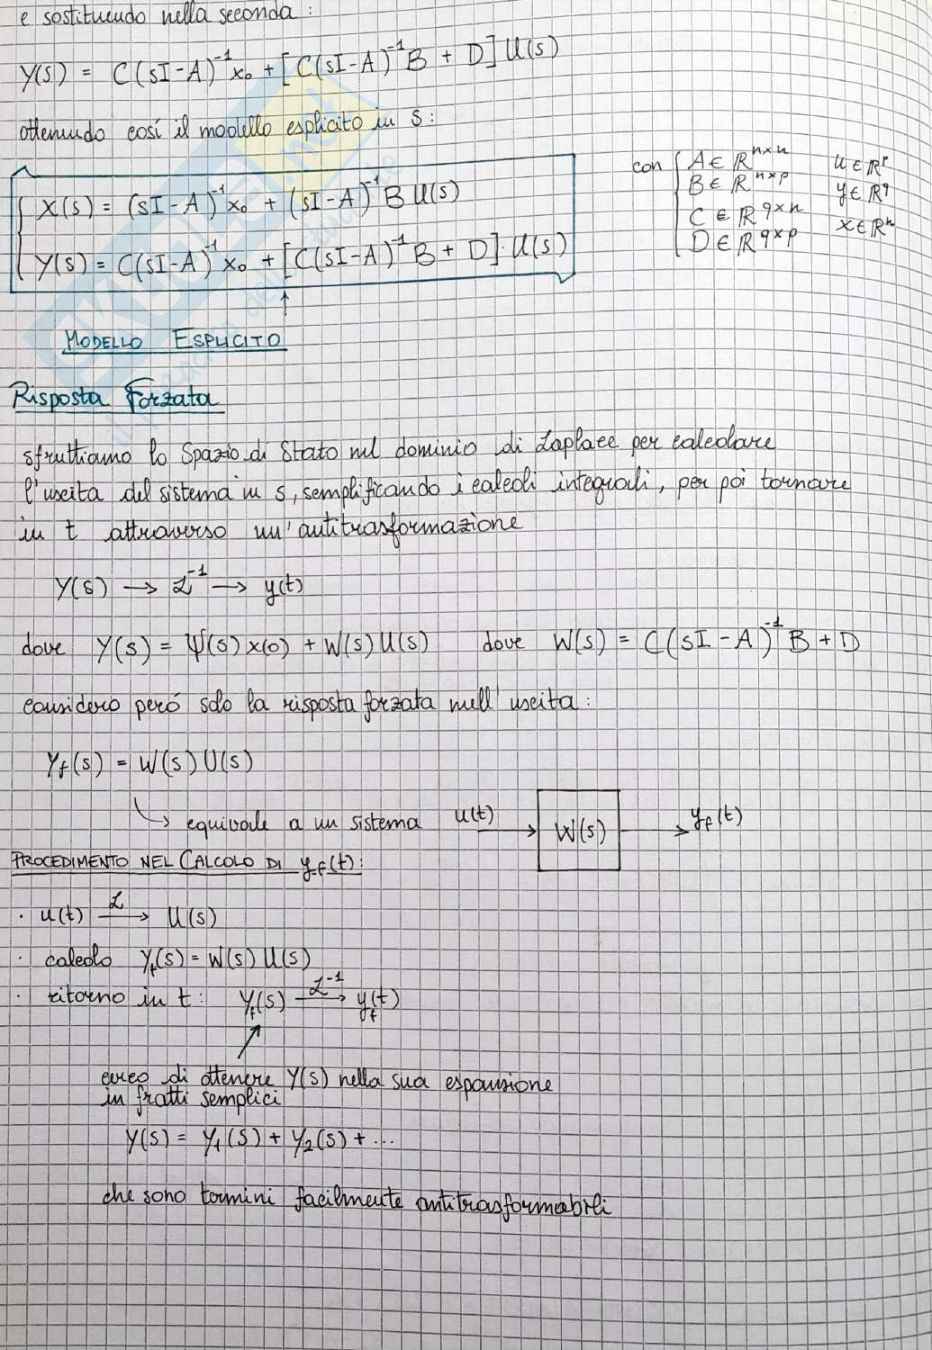 e sostituendo nella seconda:
Y(s) = C(sI-A)⁻¹x₀ + [C(sI-A)⁻¹B + D] U(s)
ottenendo così il modello esplicito in s:
con { A ∈ ℝⁿˣⁿ u ∈ ℝᵖ
B ∈ ℝⁿˣᵖ y ∈ ℝ^q
C ∈ ℝ^(q×n) x ∈ ℝⁿ
D ∈ ℝ^(q×p)
{ X(s) = (sI-A)⁻¹x₀ + (sI-A)⁻¹B U(s)
Y(s) = C(sI-A)⁻¹x₀ + [C(sI-A)⁻¹B + D]·U(s)
↑
MODELLO ESPLICITO
Risposta Forzata
sfruttiamo lo Spazio di Stato nel dominio di Laplace per calcolare
l'uscita del sistema in s, semplificando i calcoli integrali, per poi tornare
in t attraverso un'antitrasformazione
Y(s) → ℒ⁻¹ → y(t)
dove Y(s) = Ψ(s) x(0) + W(s) U(s) dove W(s) = C(sI-A)⁻¹B + D
considero però solo la risposta forzata nell'uscita:
Y_f(s) = W(s) U(s)
↳ equivale a un sistema u(t) → W(s) → y_f(t)
PROCEDIMENTO NEL CALCOLO DI y_f(t):
· u(t) ―ℒ→ U(s)
· calcolo Y_f(s) = W(s) U(s)
· ritorno in t: Y_f(s) ―ℒ⁻¹→ y_f(t)
cerco di ottenere Y(s) nella sua espansione
in fratti semplici
Y(s) = Y₁(s) + Y₂(s) + ...
che sono termini facilmente antitrasformabili